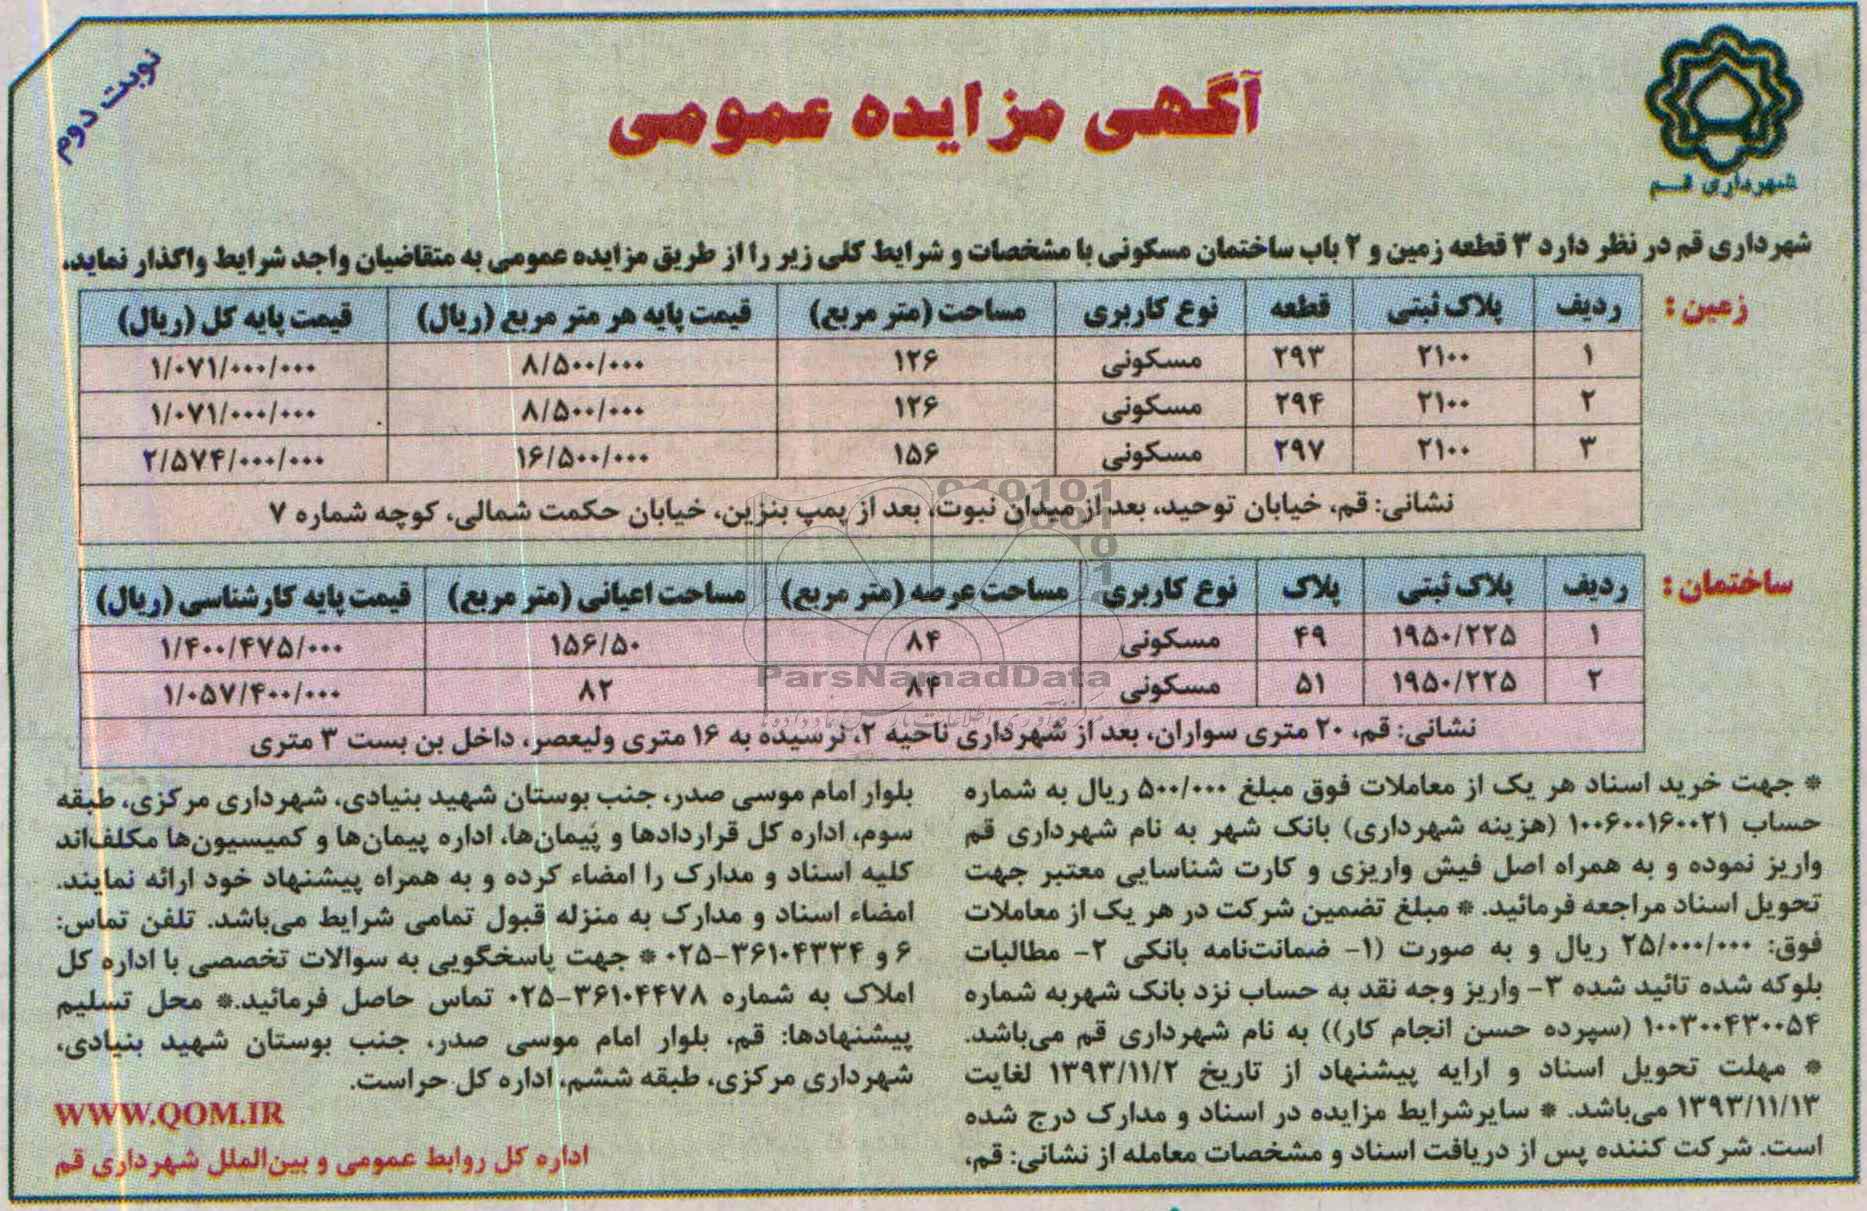 نوبت دوم
آگهی مزایده عمومی
شهرداری قم
شهرداری قم در نظر دارد ۳ قطعه زمین و ۲ باب ساختمان مسکونی با مشخصات و شرایط کلی زیر را از طریق مزایده عمومی به متقاضیان واجد شرایط واگذار نماید.
زمین :
ردیف پلاک ثبتی قطعه نوع کاربری مساحت (متر مربع) قیمت پایه هر متر مربع (ریال) قیمت پایه کل (ریال)
۱ ۲۱۰۰ ۲۹۳ مسکونی ۱۲۶ ۸/۵۰۰/۰۰۰ ۱/۰۷۱/۰۰۰/۰۰۰
۲ ۲۱۰۰ ۲۹۴ مسکونی ۱۲۶ ۸/۵۰۰/۰۰۰ ۱/۰۷۱/۰۰۰/۰۰۰
۳ ۲۱۰۰ ۲۹۷ مسکونی ۱۵۶ ۱۶/۵۰۰/۰۰۰ ۲/۵۷۴/۰۰۰/۰۰۰
نشانی: قم، خیابان توحید، بعد از میدان نبوت، بعد از پمپ بنزین، خیابان حکمت شمالی، کوچه شماره ۷
ساختمان :
ردیف پلاک ثبتی پلاک نوع کاربری مساحت عرصه (متر مربع) مساحت اعیانی (متر مربع) قیمت پایه کارشناسی (ریال)
۱ ۱۹۵۰/۲۲۵ ۴۹ مسکونی ۸۴ ۱۵۶/۵۰ ۱/۴۰۰/۴۷۵/۰۰۰
۲ ۱۹۵۰/۲۲۵ ۵۱ مسکونی ۸۴ ۸۲ ۱/۰۵۷/۴۰۰/۰۰۰
نشانی: قم، ۲۰ متری سواران، بعد از شهرداری ناحیه ۲، نرسیده به ۱۶ متری ولیعصر، داخل بن بست ۳ متری
ParsNamadData
* جهت خرید اسناد هر یک از معاملات فوق مبلغ ۵۰۰/۰۰۰ ریال به شماره
حساب ۱۰۰۶۰۰۱۶۰۰۲۱ (هزینه شهرداری) بانک شهر به نام شهرداری قم
واریز نموده و به همراه اصل فیش واریزی و کارت شناسایی معتبر جهت
تحویل اسناد مراجعه فرمائید. * مبلغ تضمین شرکت در هر یک از معاملات
فوق: ۲۵/۰۰۰/۰۰۰ ریال و به صورت (۱- ضمانت‌نامه بانکی ۲- مطالبات
بلوکه شده تائید شده ۳- واریز وجه نقد به حساب نزد بانک شهربه شماره
۱۰۰۳۰۰۴۳۰۰۵۴ (سپرده حسن انجام کار)) به نام شهرداری قم می‌باشد.
* مهلت تحویل اسناد و ارایه پیشنهاد از تاریخ ۱۳۹۳/۱۱/۲ لغایت
۱۳۹۳/۱۱/۱۳ می‌باشد. * سایرشرایط مزایده در اسناد و مدارک درج شده
است. شرکت کننده پس از دریافت اسناد و مشخصات معامله از نشانی: قم،
بلوار امام موسی صدر، جنب بوستان شهید بنیادی، شهرداری مرکزی، طبقه
سوم، اداره کل قراردادها و پیمان‌ها، اداره پیمان‌ها و کمیسیون‌ها مکلف‌اند
کلیه اسناد و مدارک را امضاء کرده و به همراه پیشنهاد خود ارائه نمایند.
امضاء اسناد و مدارک به منزله قبول تمامی شرایط می‌باشد. تلفن تماس:
۶ و ۳۶۱۰۴۳۳۴-۰۲۵ * جهت پاسخگویی به سوالات تخصصی با اداره کل
املاک به شماره ۳۶۱۰۴۴۷۸-۰۲۵ تماس حاصل فرمائید.* محل تسلیم
پیشنهادها: قم، بلوار امام موسی صدر، جنب بوستان شهید بنیادی،
شهرداری مرکزی، طبقه ششم، اداره کل حراست.
WWW.QOM.IR
اداره کل روابط عمومی و بین‌الملل شهرداری قم